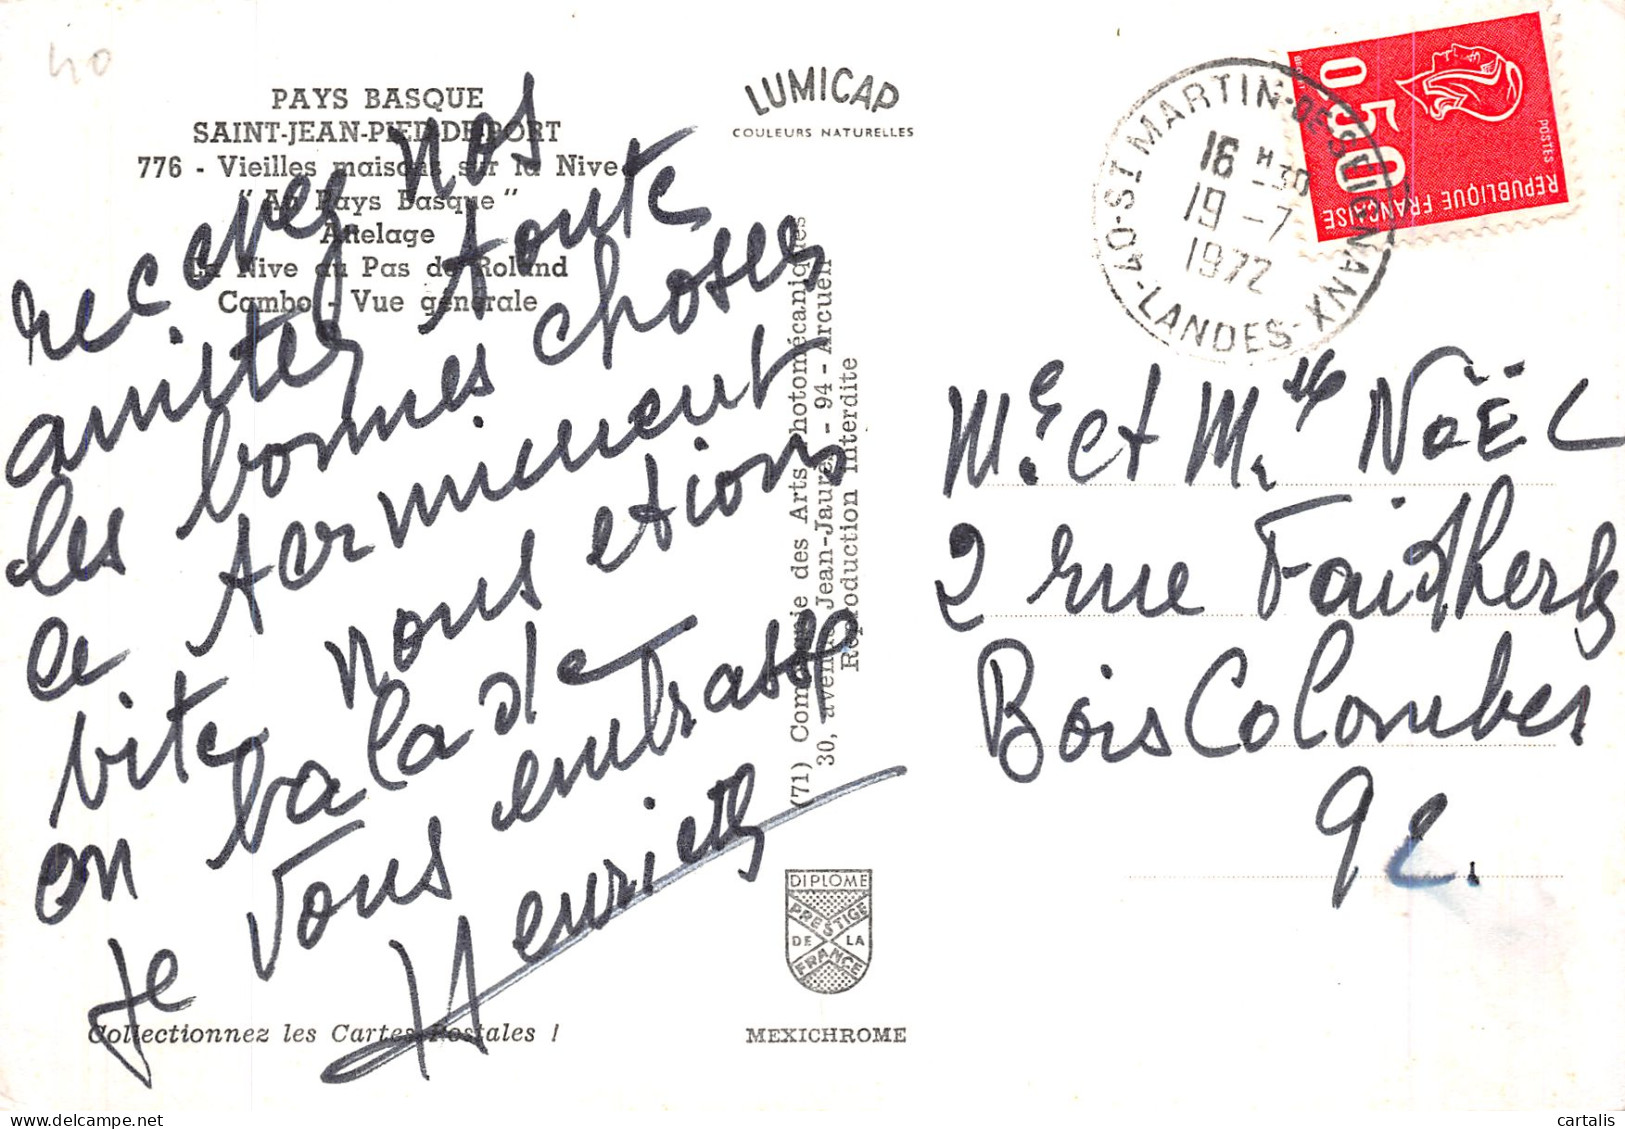 40
PAYS BASQUE
SAINT-JEAN-PIED-DE-PORT
776 - Vieilles maisons sur la Nive
"Au Pays Basque"
Attelage
La Nive au Pas de Roland
Cambo - Vue générale
recevez nos
amities toute
les bonnes choses
ce terminent
vite nous etions
en balade
je vous embrasse
Henriette
Collectionnez les Cartes Postales !
LUMICAP
COULEURS NATURELLES
(71) Compagnie des Arts Photomécaniques
30, avenue Jean-Jaurès - 94 - Arcueil
Reproduction Interdite
DIPLOME
PRESTIGE
DE LA
FRANCE
MEXICHROME
40-ST MARTIN-DE-SEIGNANX
16 H 30
19 - 7
1972
-LANDES-
0,50
POSTES
REPUBLIQUE FRANÇAISE
Mr et Mme NOËL
2 rue Faidherbe
Bois Colombes
92.
cartalis